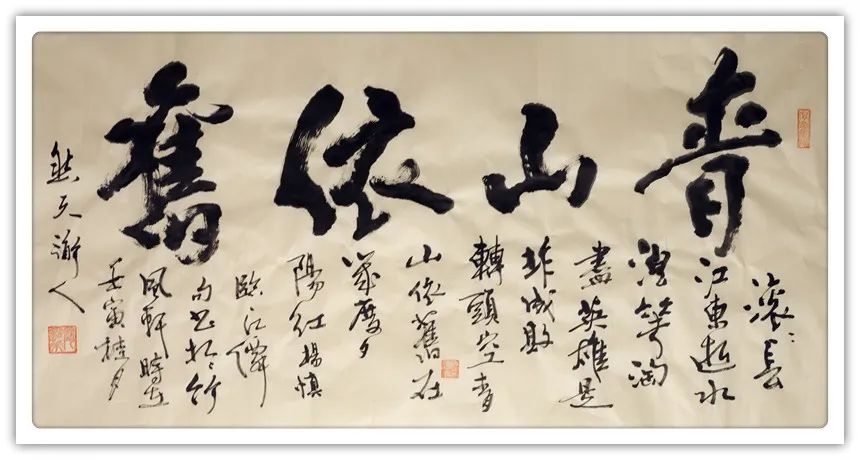 青山依舊
滾〻長
江東逝水
浪花淘
盡英雄是
非成敗
轉頭空青
山依舊在
幾度夕
陽紅楊慎
臨江僊
句書於竹
風軒時在
壬寅桂月